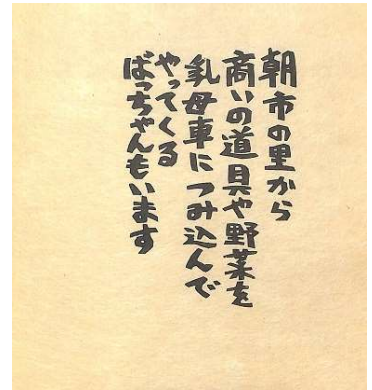 朝市の里から
商いの道具や野菜を
乳母車につみ込んで
やってくる
ばっちゃんもいます